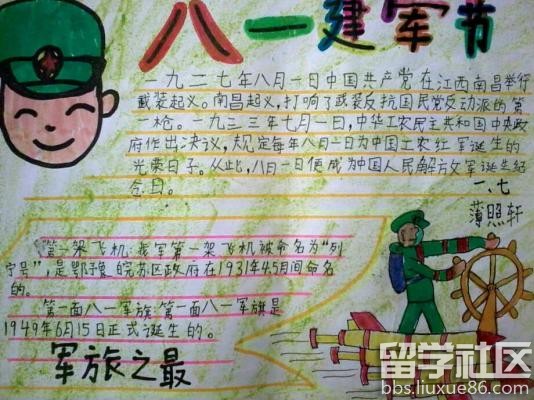 八一建军节
一九二七年八月一日中国共产党在江西南昌举行
武装起义。南昌起义,打响了武装反抗国民党反动派的第
一枪。一九三三年七月一日,中华工农民主共和国中央政
府作出决议,规定每年八月一日为中国工农红军诞生的
光荣日子。从此,八月一日便成为中国人民解放军诞生纪
念日。
一.七
薄照轩
第一架飞机:我军第一架飞机被命名为“列
宁号”,是鄂豫皖苏区政府在1931年4.5月间命名
的。
第一面八一军旗:第一面八一军旗是
1949年6月15日正式诞生的。
军旅之最
留学社区
bbs.liuxue86.com